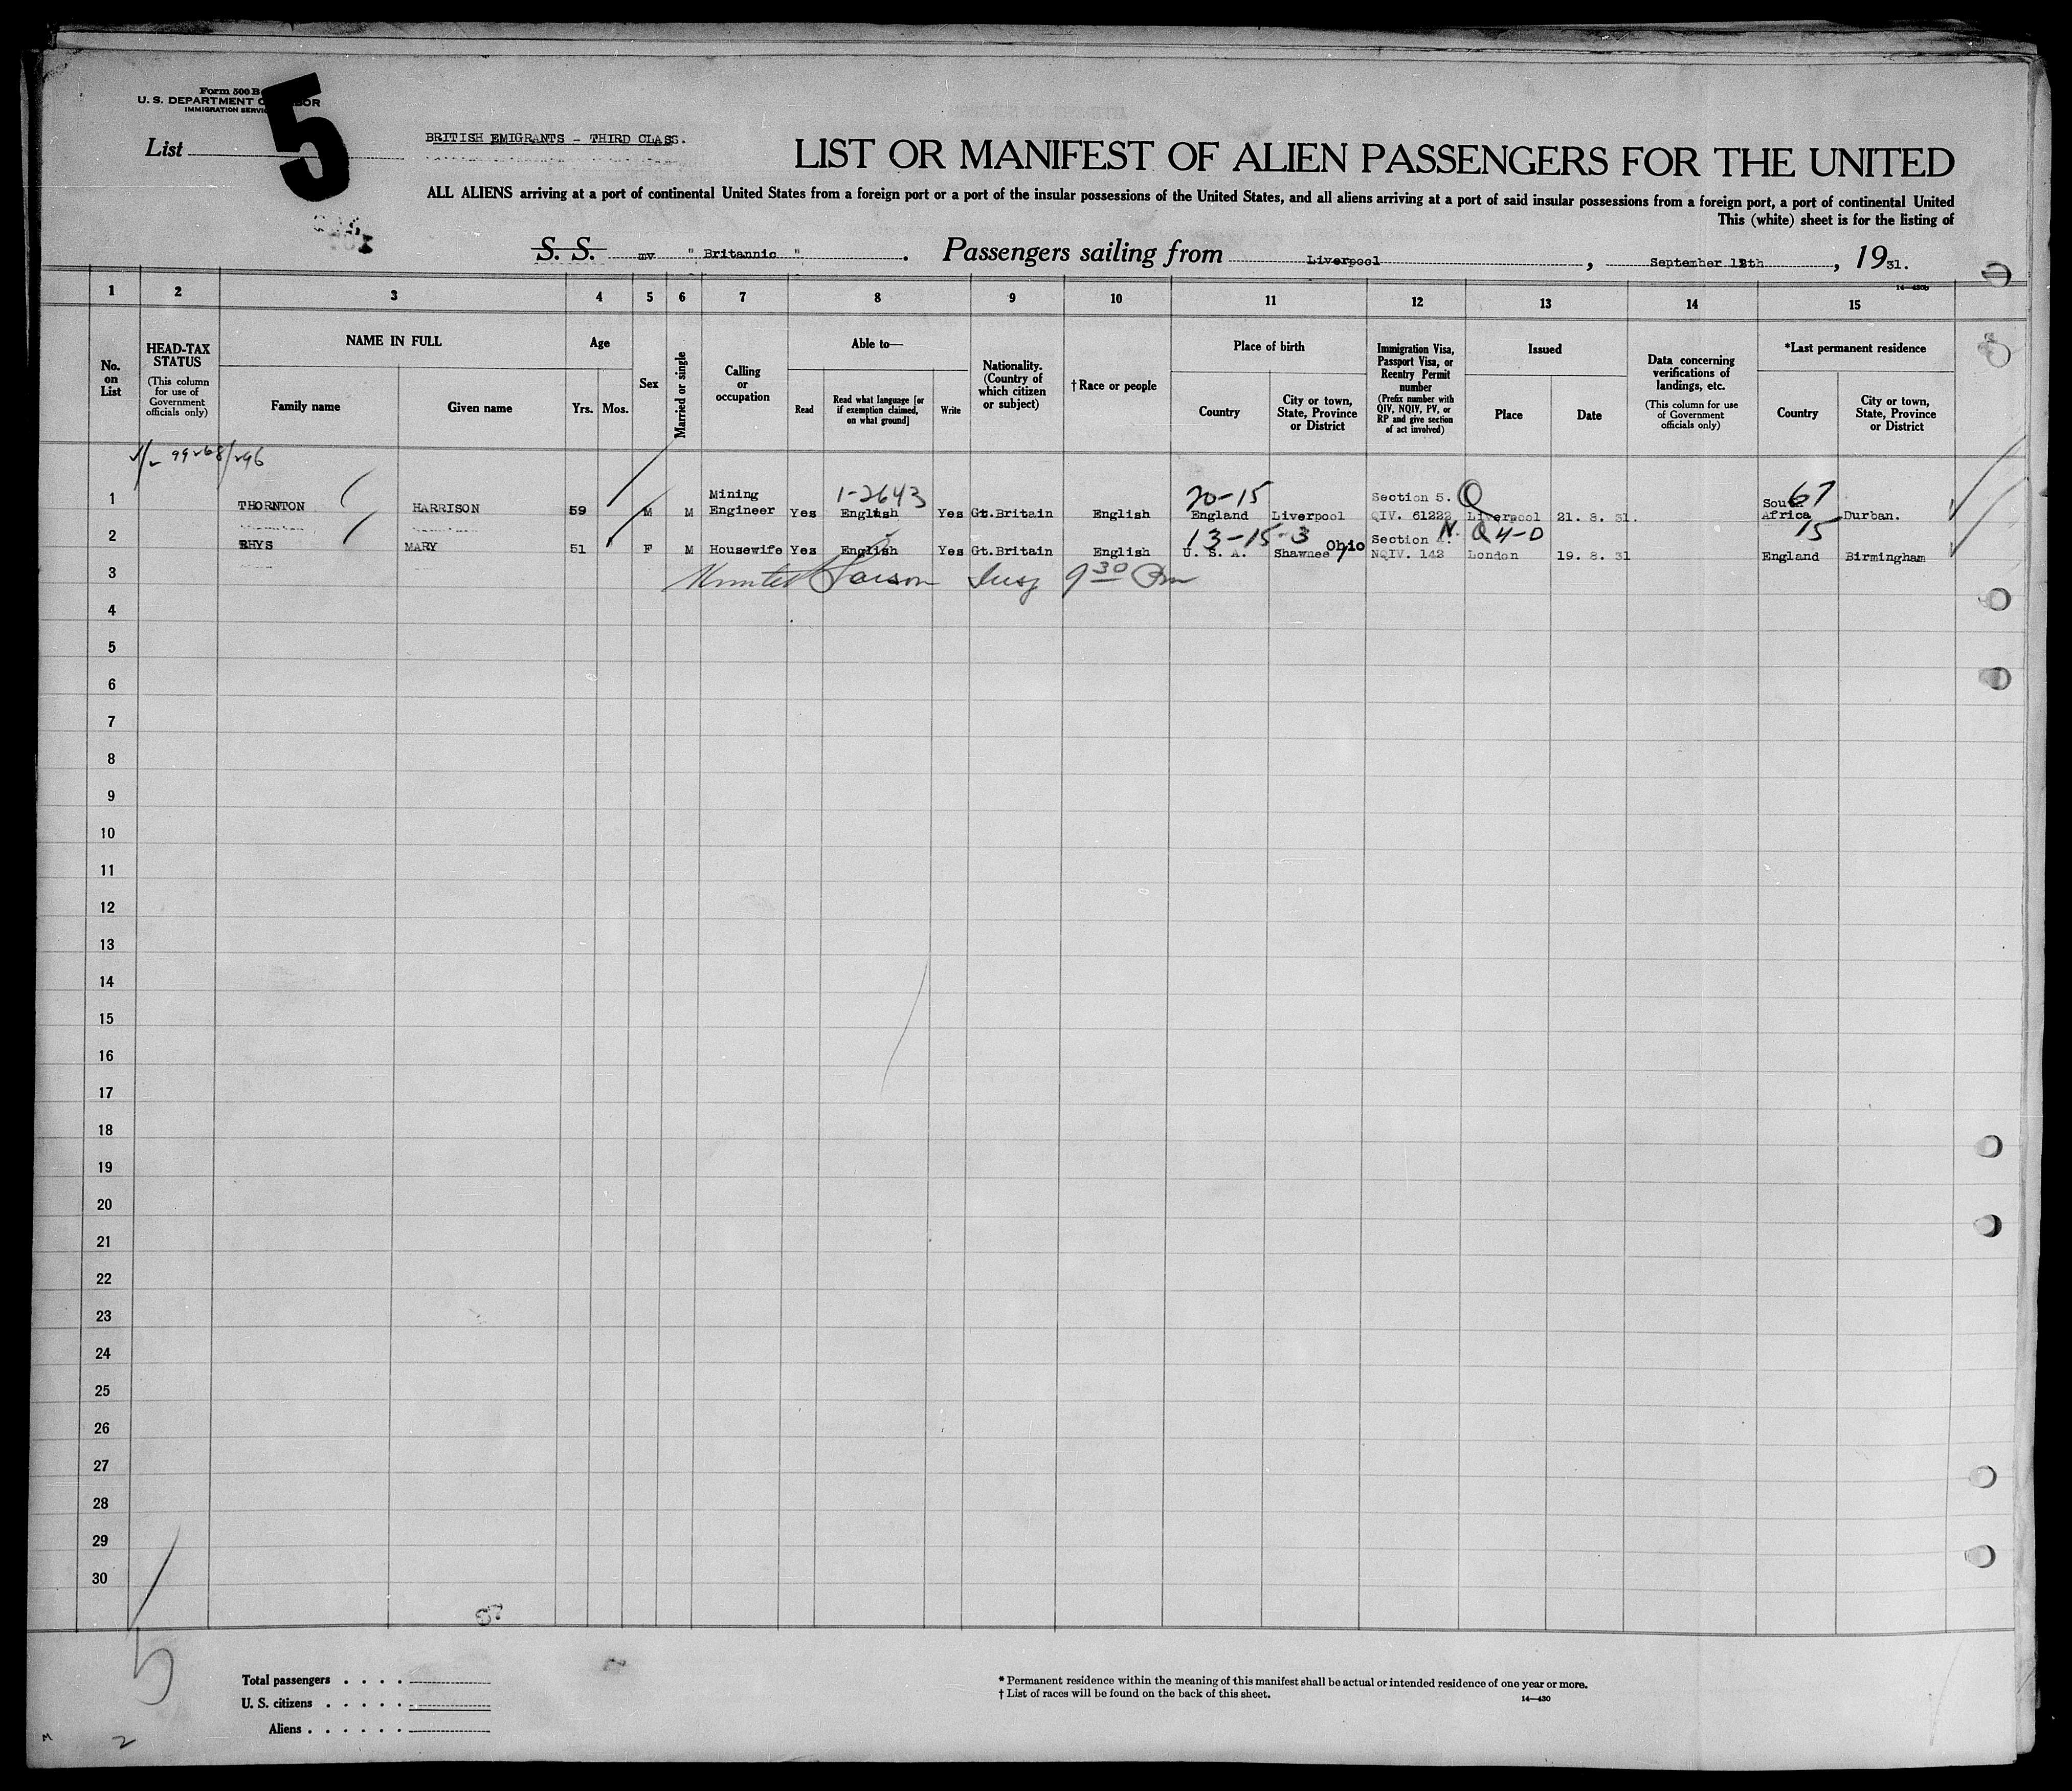 Form 500 B
U. S. DEPARTMENT OF LABOR
IMMIGRATION SERVICE
5
List
BRITISH EMIGRANTS - THIRD CLASS.
LIST OR MANIFEST OF ALIEN PASSENGERS FOR THE UNITED
ALL ALIENS arriving at a port of continental United States from a foreign port or a port of the insular possessions of the United States, and all aliens arriving at a port of said insular possessions from a foreign port, a port of continental United
This (white) sheet is for the listing of
S. S. mv " Britannic " . Passengers sailing from Liverpool , September 12th , 19 31.
14—430b
1 2 3 4 5 6 7 8 9 10 11 12 13 14 15
No. on List
HEAD-TAX STATUS
(This column for use of Government officials only)
NAME IN FULL
Family name Given name
Age
Yrs. Mos.
Sex
Married or single
Calling or occupation
Able to—
Read
Read what language [or if exemption claimed, on what ground]
Write
Nationality. (Country of which citizen or subject)
† Race or people
Place of birth
Country
City or town, State, Province or District
Immigration Visa, Passport Visa, or Reentry Permit number
(Prefix number with QIV, NQIV, PV, or RP and give section of act involved)
Issued
Place Date
Data concerning verifications of landings, etc.
(This column for use of Government officials only)
*Last permanent residence
Country
City or town, State, Province or District
1-2643 20-15 Q 67
1 THORNTON HARRISON 59 M M Mining Engineer Yes English Yes Gt.Britain English England Liverpool Section 5. QIV. 61222 Liverpool 21. 8. 31. South Africa Durban.
13-15-3 N. Q 4-D 15
2 RHYS MARY 51 F M Housewife Yes English Yes Gt.Britain English U. S. A. Shawnee Ohio Section NQIV. 142 London 19. 8. 31 England Birmingham
3 Insp 9 30 Pm
4
5
6
7
8
9
10
11
12
13
14
15
16
17
18
19
20
21
22
23
24
25
26
27
28
29
30
5
Total passengers . . . .
U. S. citizens . . . . .
Aliens . . . . . .
* Permanent residence within the meaning of this manifest shall be actual or intended residence of one year or more.
† List of races will be found on the back of this sheet.
14—430
2